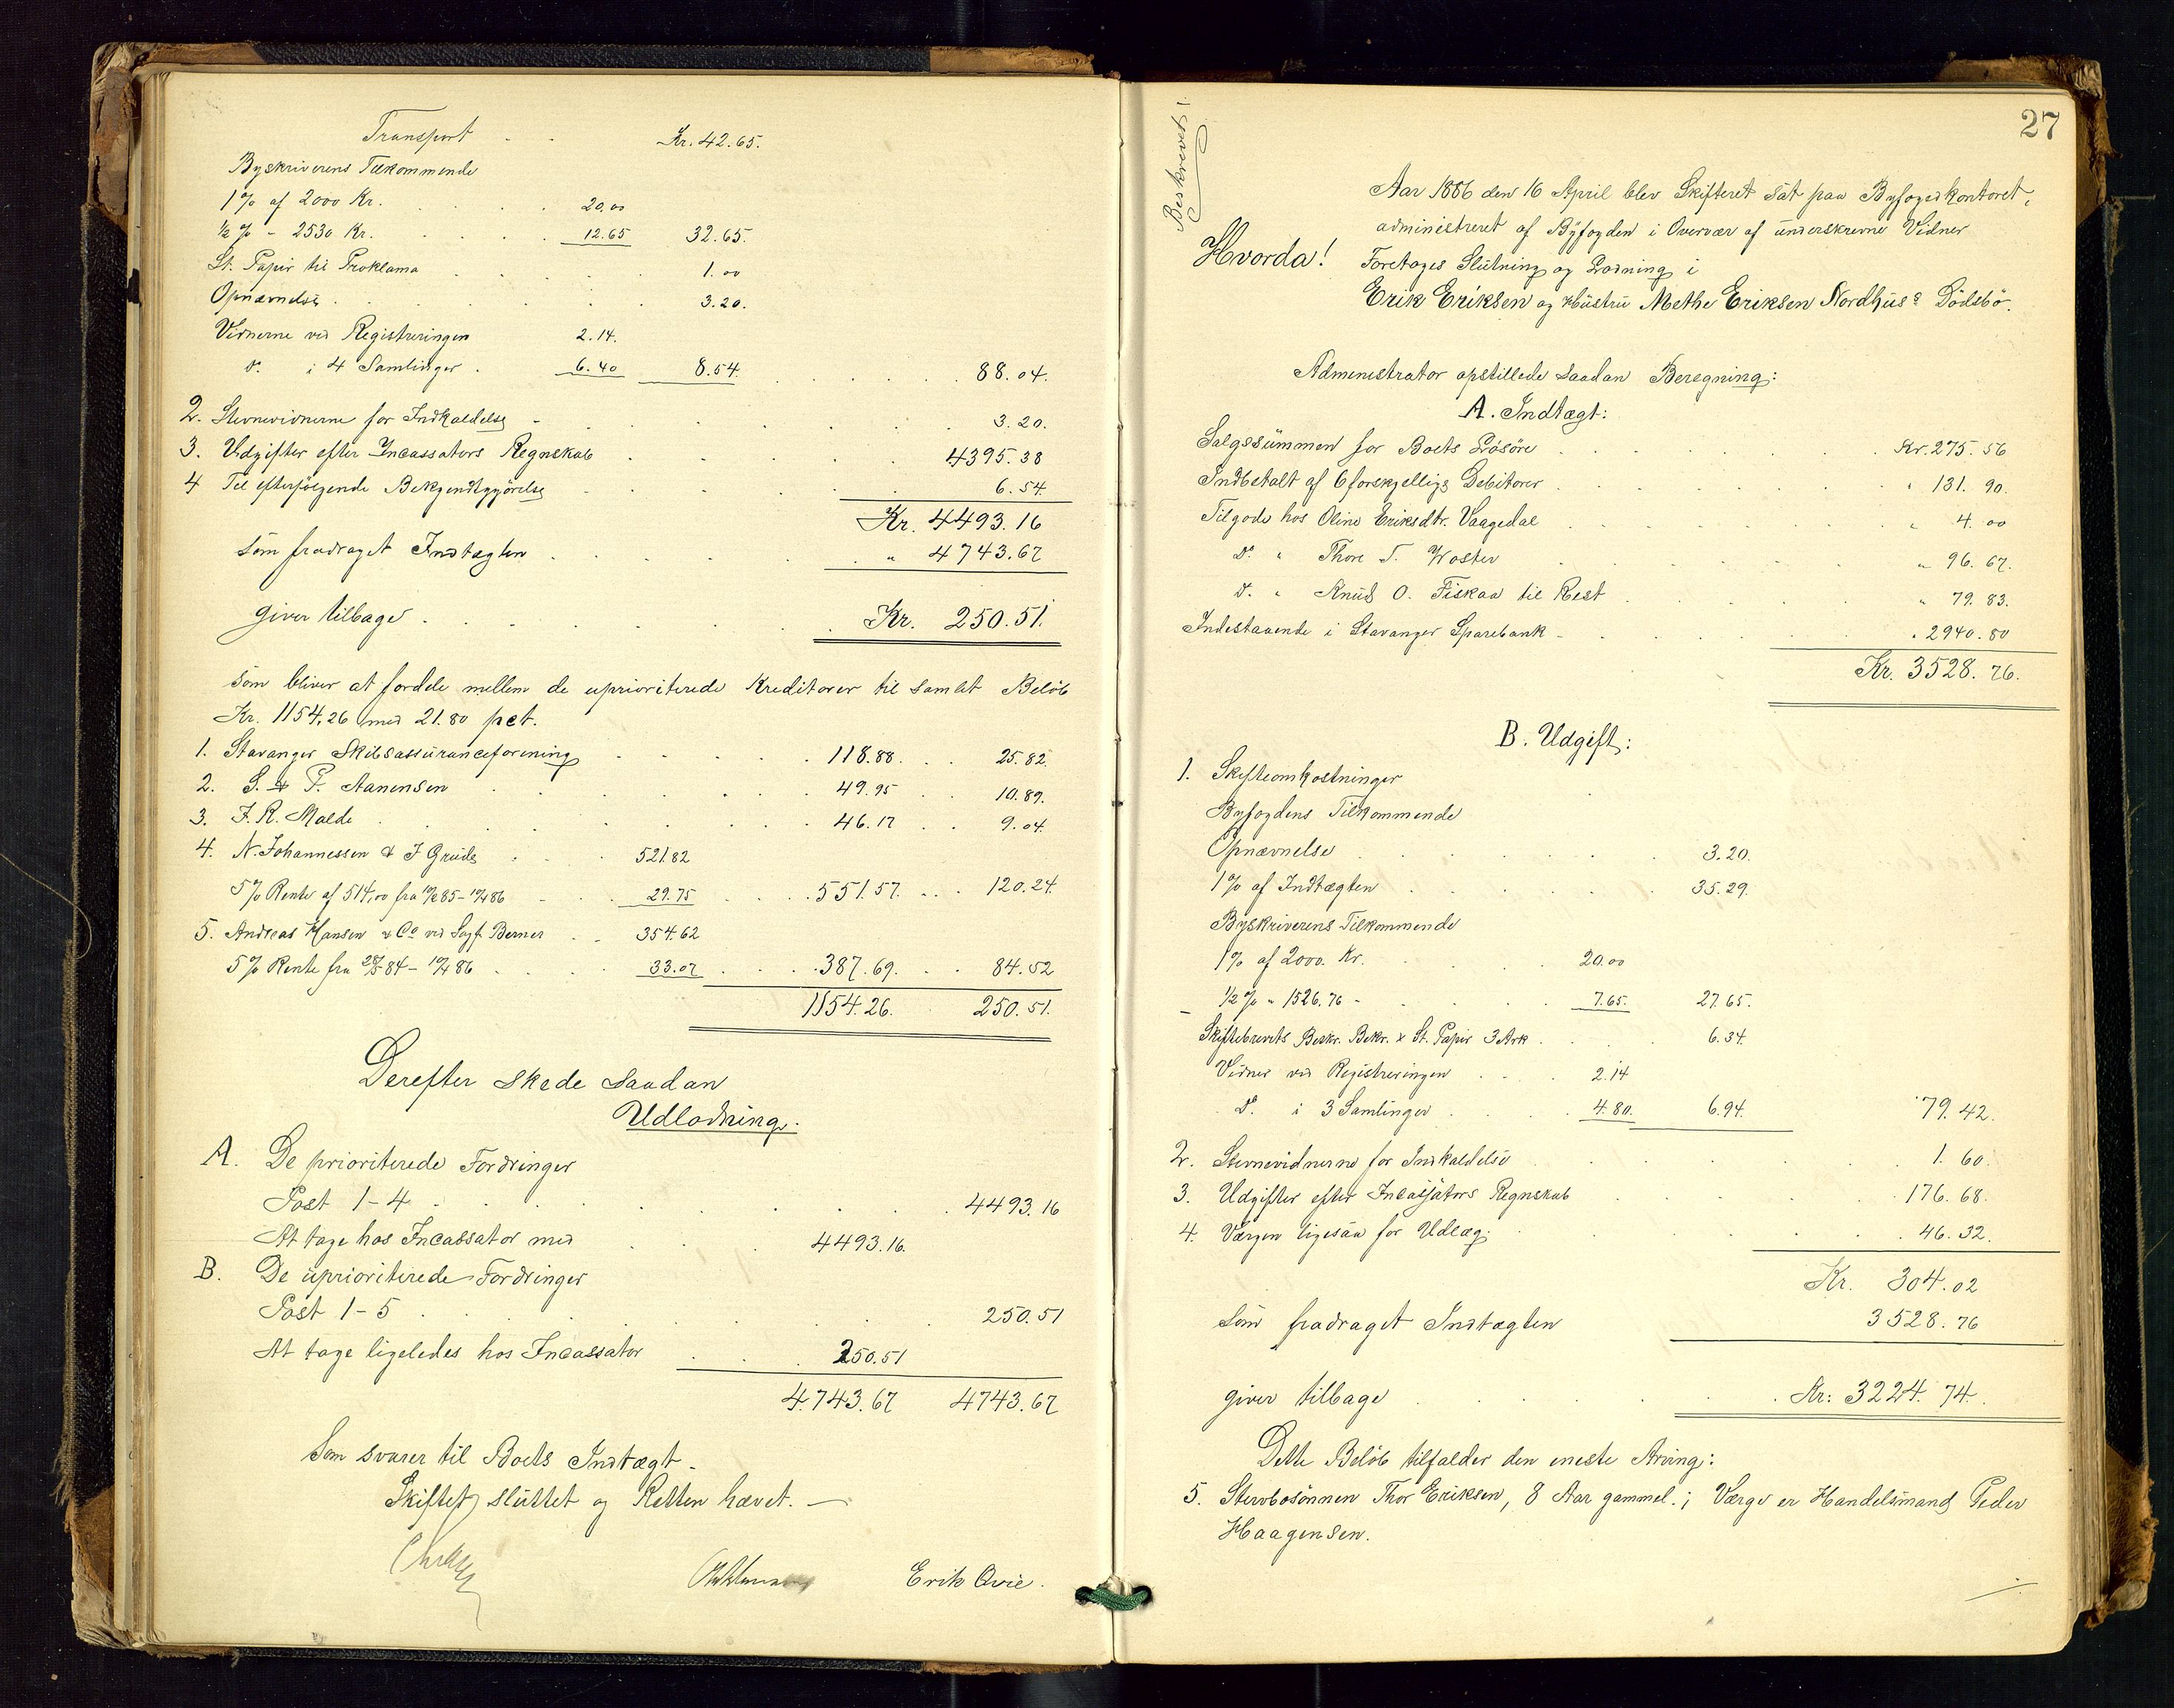 Transport . . Kr. 42.65.
Byskriverens Tilkommende
1% af 2000 Kr. . . . . 20.00
½ % - 2530 Kr. . . . . 12.65 32.65.
St. Papir til Proklama . . . . . 1.00
Opnævnelse . . . . . . . 3.20.
Vidnerne ved Registreringen 2.14.
do. i 4 Samlinger . 6.40 8.54. . . . . 88.04.
2. Stevnevidnerne for Indkaldelse - . . . . . 3.20.
3. Udgifter efter Incassators Regnskab . . . . 4395.38
4 Til efterfølgende Bekjendtgjörelse . . . . 6.54.
Kr. 4493.16
som fradraget Indtægten . . . . . " 4743.67
giver tilbage . . . . . . Kr. 250.51.
som bliver at fordele mellem de uprioriterede Kreditorer til samlet Belöb
Kr. 1154,26 med 21.80 pct.
1. Stavanger Skibsassuranceforening . . . . 118.88. . . 25.82.
2. S. & P. Aanensen . . . . . 49.95 . . 10.89.
3. F. R. Malde . . . . . . 46.17 . . 9.04.
4. N. Johannessen & J Grude . . . 521.82
5% Rente af 514,00 fra 19/2 85 - 16/4 86 . . 29.75 . . . 551.57. . . . 120.24.
5. Andreas Hansen & Co ved Sagf. Berner . . 354.62
5% Rente fra 28/5 84 - 16/4 86 . . . . 33.07 . . . 387.69. . . 84.52
1154.26. 250.51.
Derefter skede saadan
Udlodning.
A. De prioriterede Fordringer
Post 1-4 . . . . . . . . 4493.16
At tage hos Incassator med . . . 4493.16.
B. De uprioriterede Fordringer
Post 1-5 . . . . . . . 250.51
At tage ligeledes hos Incassator . . . 250.51
4743.67 4743.67
Som svarer til Boets Indtægt.
Skiftet sluttet og Retten hævet. —
Erik Qvie.
27
Beskrevet!
Aar 1886 den 16 April blev Skifteret sat paa Byfogedkontoret,
administreret af Byfogden i Overvær af underskrevne Vidner
Hvorda! Foretoges Slutning og Lodning i
Erik Eriksen og Hustru Methe Eriksen Nordhus's Dödsbö.
Administrator opstillede saadan Beregning:
A. Indtægt:
Salgssummen for Boets Lösöre . . . . . Kr. 275.56
Indbetalt af 6 forskjellige Debitorer . . . . " 131. 90.
Tilgode hos Oline Eriksdtr. Vaagedal . . . . " 4. 00
do. " Thore T. Woster . . . . . " 96. 67.
do. " Knud O. Fiskaa til Rest . . . . " 79. 83.
Indestaaende i Stavanger Sparebank - . . . . " 2940. 80
Kr. 3528. 76.
B. Udgift:
1. Skifteomkostninger
Byfogdens Tilkommende
Opnævnelse . . . . . 3.20.
1% af Indtægten . . . . . 35.29.
Byskriverens Tilkommende
1% af 2000. Kr. . . . . 20.00
½ % " 1526.76 - . . . . 7.65. 27.65.
Skiftebrevets Beskr. Bekr. & St. Papir 3 Ark . . . 6.34.
Vidner ved Registreringen . . . 2.14
do. i 3 Samlinger . . . . 4.80. 6.94. 79. 42.
2. Stevnevidnerne for Indkaldelse . . . . . 1. 60.
3. Udgifter efter Incassators Regnskab . . . . 176. 68.
4. Værgen ligesaa for Udlæg . . . . . 46. 32.
Kr. 304.02
som fradraget Indtægten 3528.76
giver tilbage . . . . Kr: 3224. 74.
Dette Belöb tilfalder den eneste Arving:
5. Stervbosönnen Thor Eriksen, 8 Aar gammel.; Værge er Handelsmand Peder
Haagensen.